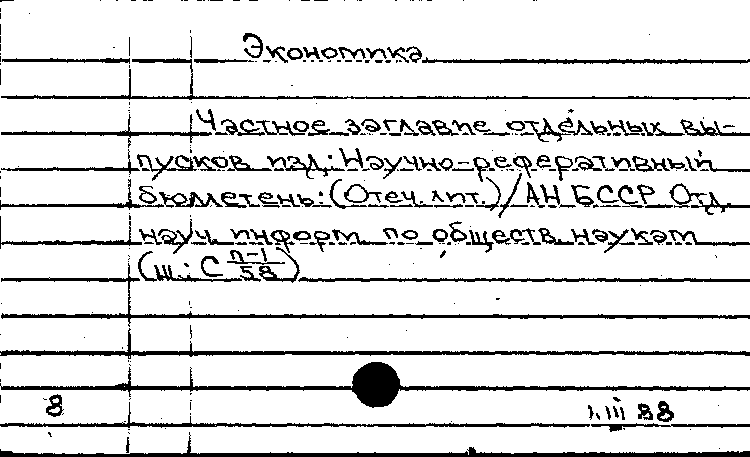 Экономика
Частное заглавие отдельных вы-
пусков изд.: Научно-реферативный
бюллетень: (Отеч. лит.) / АН БССР Отд.
науч. информ. по обществ. наукам
(ш.: С п-1/58)
8 1. III 88